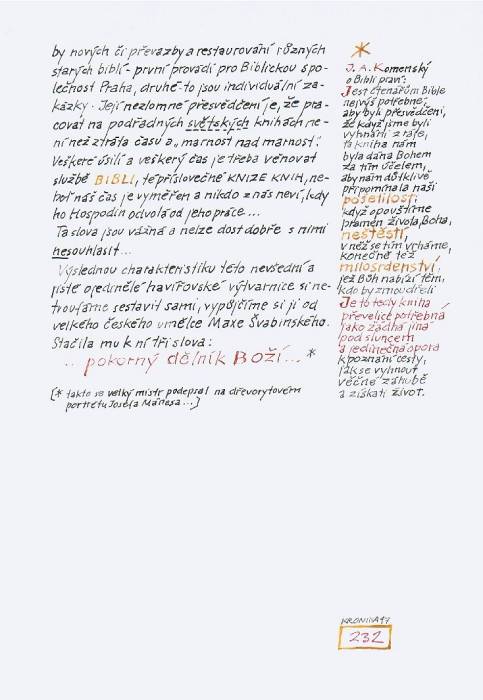 by nových či převazby a restaurování různých
starých biblí - první provádí pro Biblickou spo-
lečnost Praha, druhé - to jsou individuální za-
kázky. Její nezlomné přesvědčení je, že pra-
covat na podřadných světských knihách ne-
ní než ztráta času a „marnost nad marnost".
Veškeré úsilí a veškerý čas je třeba věnovat
službě BIBLI, té příslovečné KNIZE KNIH, ne-
boť náš čas je vyměřen a nikdo z nás neví, kdy
ho Hospodin odvolá od jeho práce...
Ta slova jsou vážná a nelze dost dobře s nimi
nesouhlasit...
Výslednou charakteristiku této nevšední a
jistě ojedinělé havířovské výtvarnice si ne-
troufáme sestavit sami, vypůjčíme si ji od
velkého českého umělce Maxe Švabinského.
Stačila mu k ní tři slova:
... pokorný dělník Boží... *
[* takto se velký mistr podepsal na dřevorytovém
portrétu Josefa Mánesa...]
*
J. A. Komenský
o Bibli praví:
Jest čtenářům Bible
nejvýš potřebné,
aby byli přesvědčeni,
že když jsme byli
vyhnáni z ráje,
ta kniha nám
byla dána Bohem
za tím účelem,
aby nám důtklivě
připomínala naši
pošetilost,
když opouštíme
pramen života, Boha,
neštěstí,
v něž se tím vrháme,
konečně též
milosrdenství,
jež Bůh nabízí těm,
kdo by zmoudřeli
Je to tedy kniha
převelice potřebná
jako žádná jiná
pod sluncem
a jedinečná opora
k poznání cesty,
jak se vyhnout
věčné záhubě
a získati život.
KRONIKA 97
232